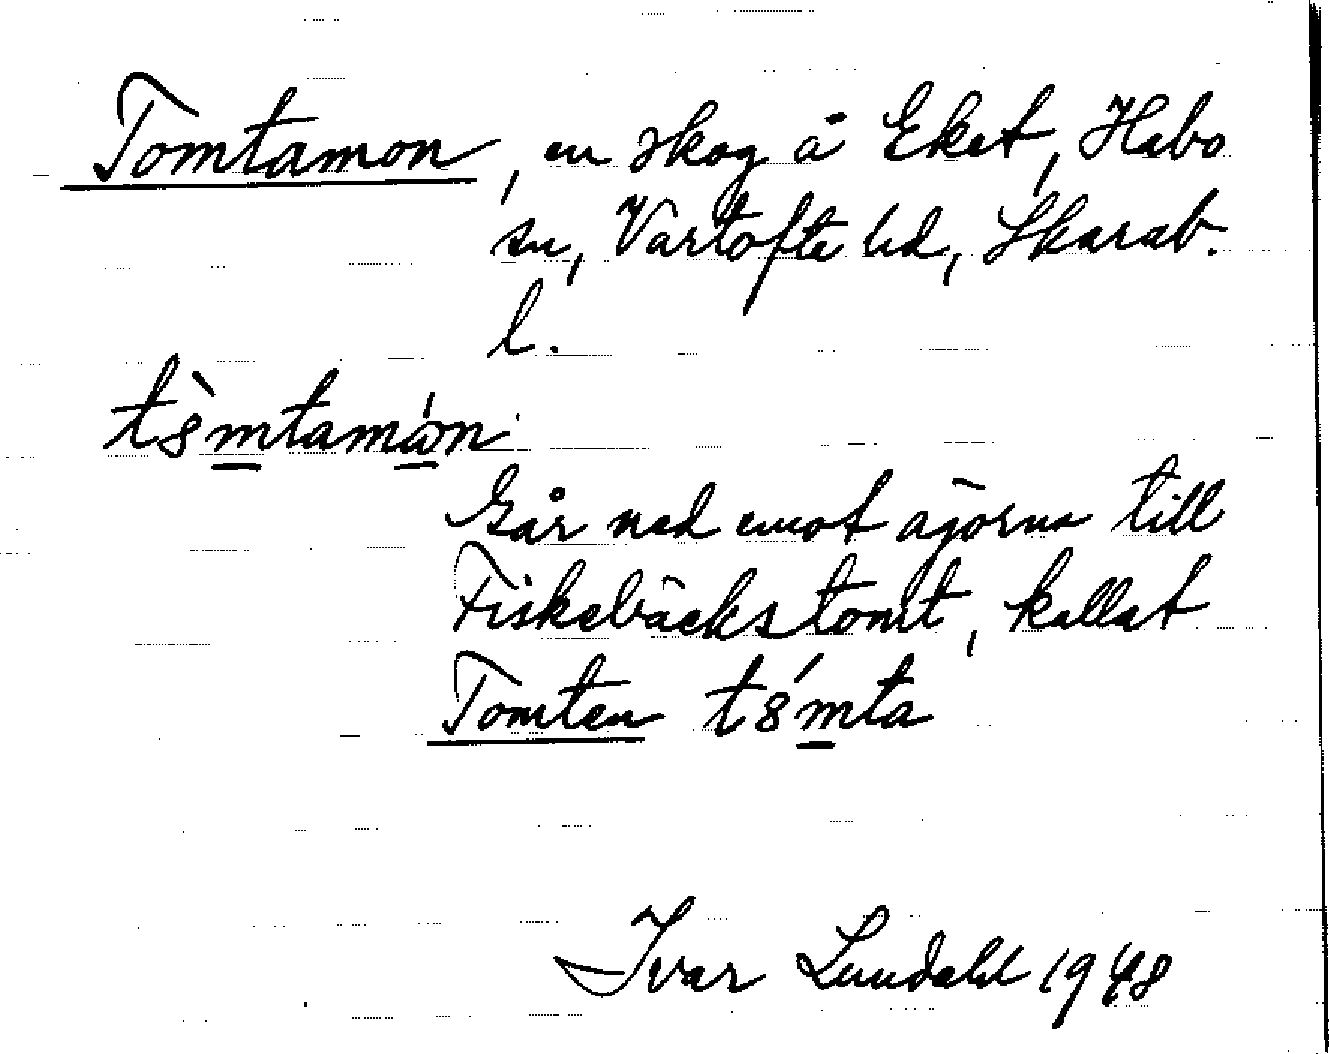 Tomtamon, en skog å Eket, Habo
sn, Vartofte hd, Skarab.
l.
Går ned emot ägorna till
Fiskebäckstomt, kallat
Tomten
Ivar Lundahl 1948